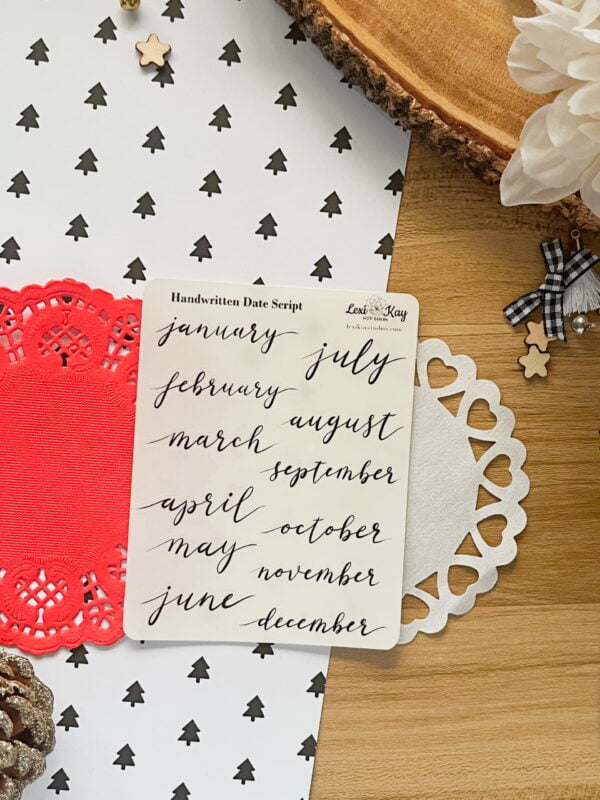 Handwritten Date Script
Lexi Kay
STUDIOS
lexikaystudios.com
january
february
march
april
may
june
july
august
september
october
november
december